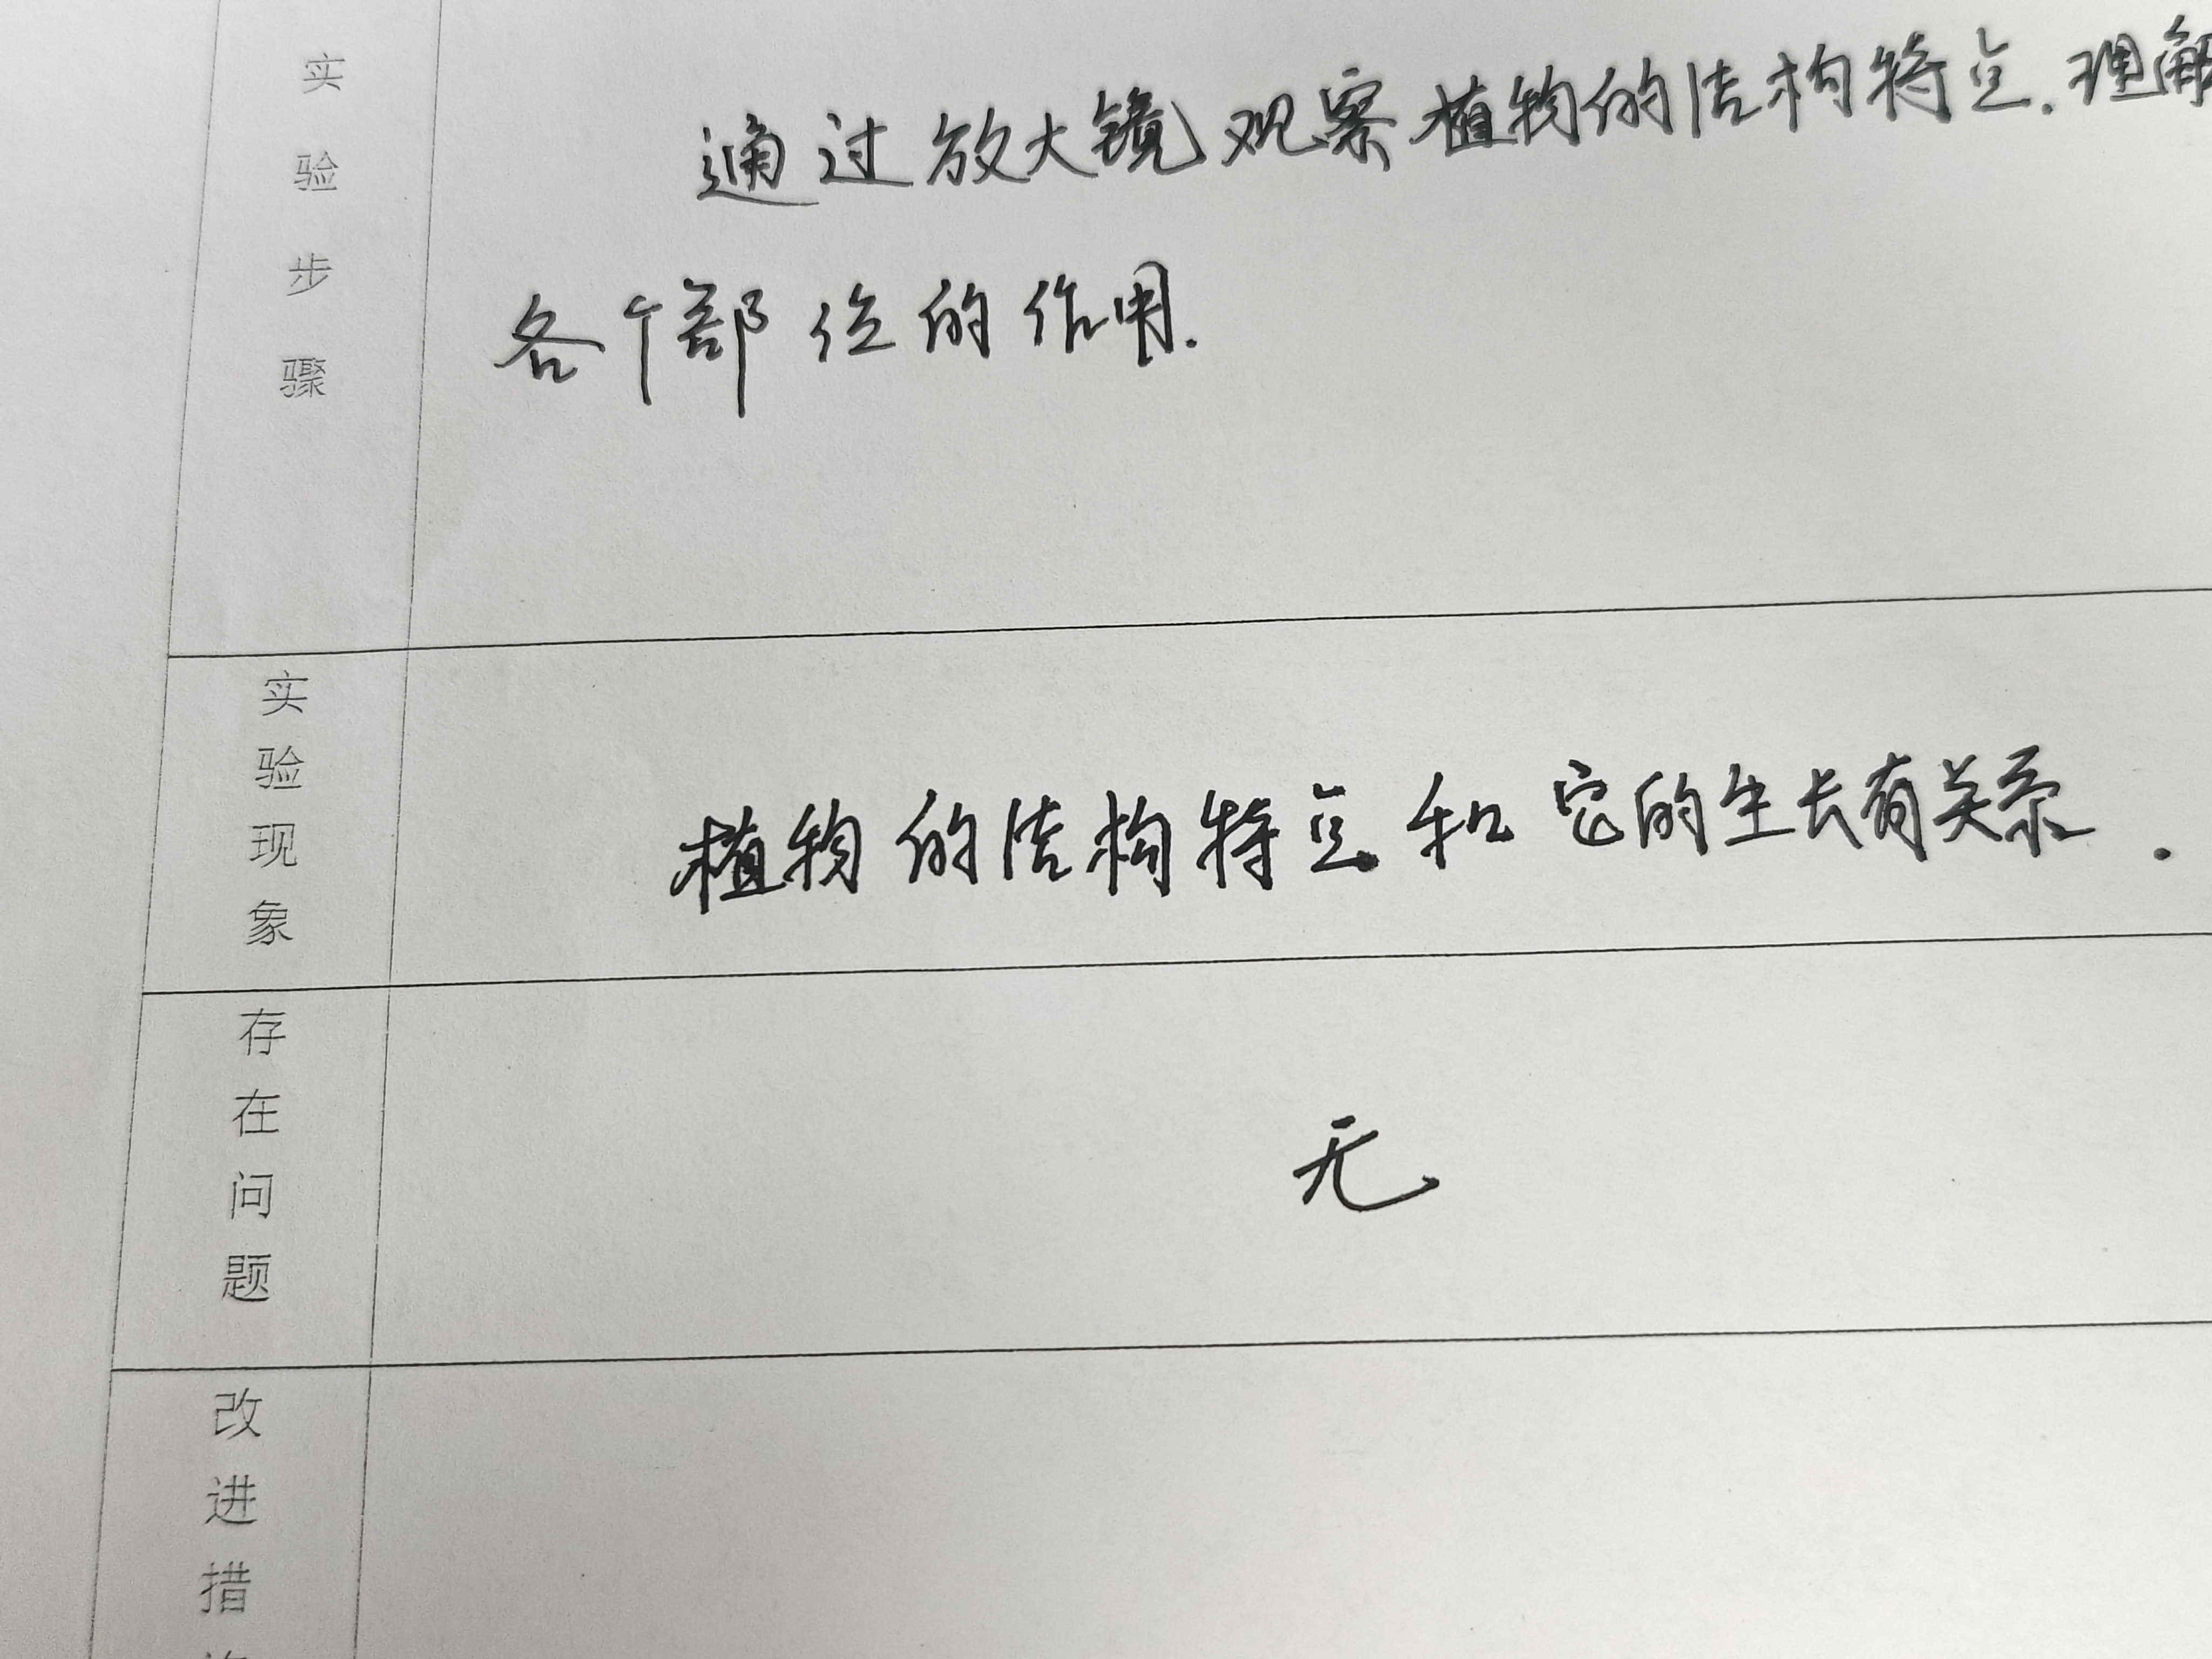 实验步骤
通过放大镜观察植物的结构特点.理解
各个部位的作用.
实验现象
植物的结构特点和它的生长有关系.
存在问题
无
改进措